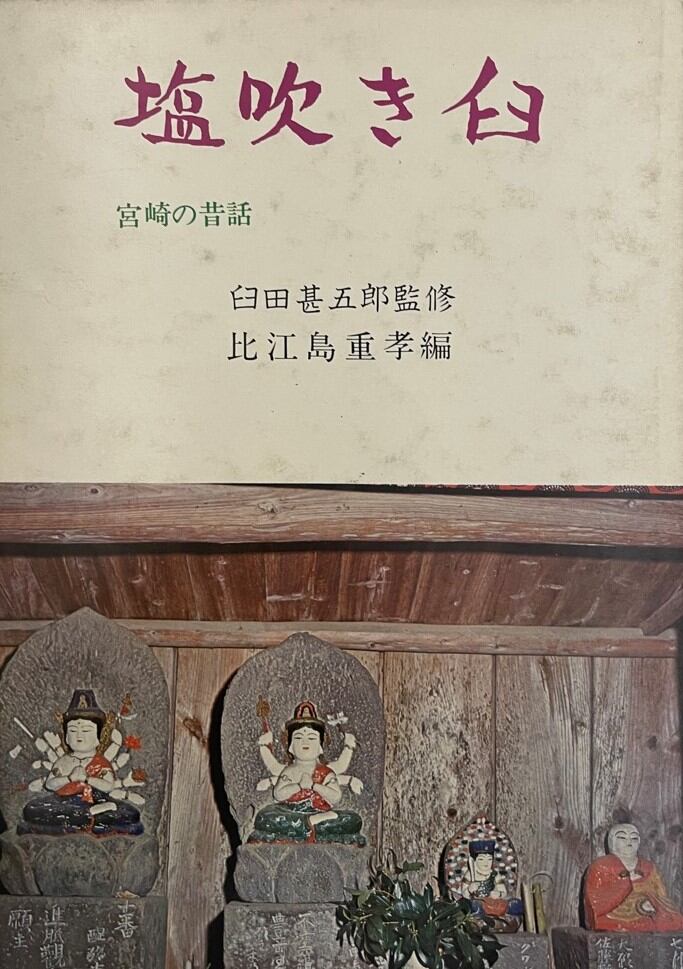 塩吹き臼
宮崎の昔話
臼田甚五郎監修
比江島重孝編
十番
願主